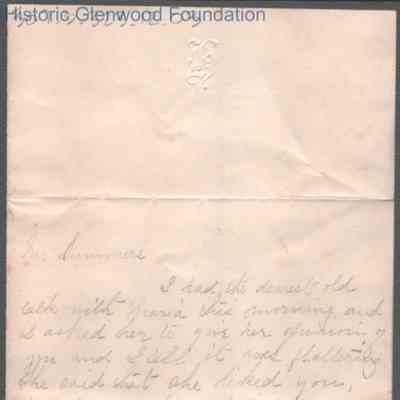 Historic Glenwood Foundation
Mr. Summers
I had the dearest old
talk with Maria this morning and
I asked her to give her opinion of
you and I tell it was flattering
She said that she liked you,